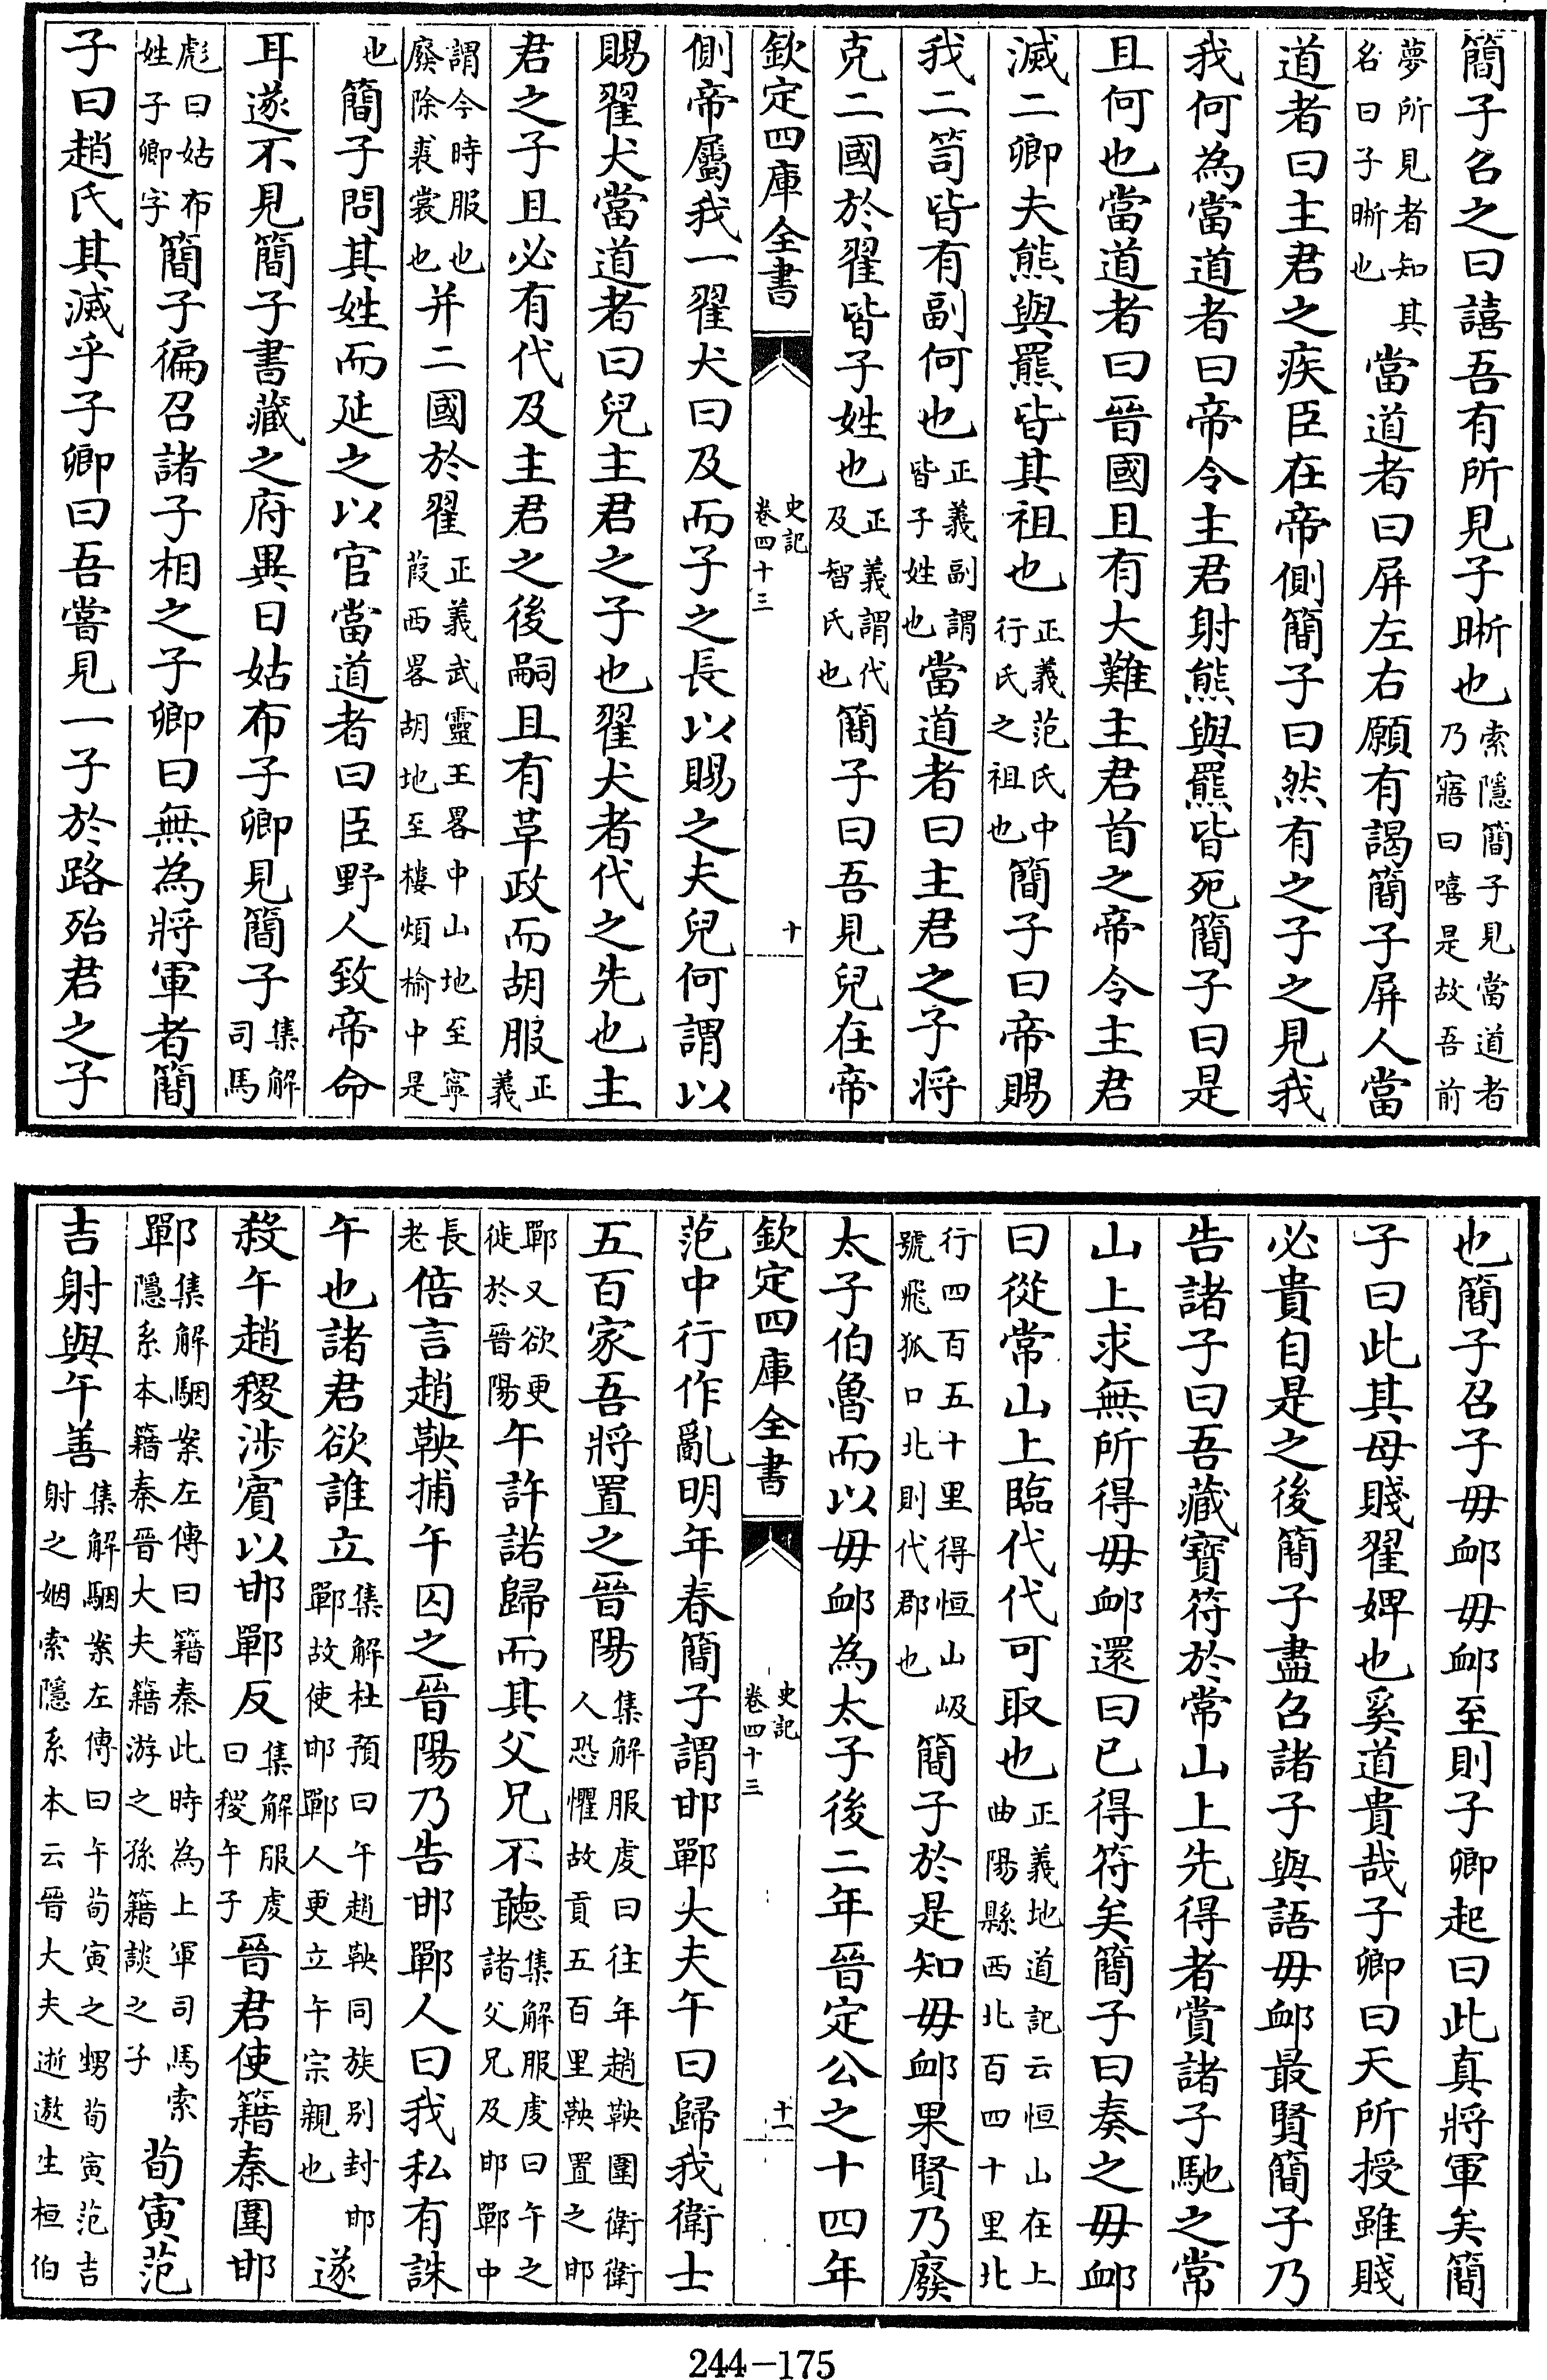 簡子召之曰譆吾有所見子晣也索隱簡子見當道者乃寤曰嘻是故吾前
夢所見者知其名曰子晣也當道者曰屏左右願有謁簡子屏人當
道者曰主君之疾臣在帝側簡子曰然有之子之見我
我何為當道者曰帝令主君射熊與羆皆死簡子曰是
且何也當道者曰晉國且有大難主君首之帝令主君
滅二卿夫熊與羆皆其祖也正義范氏中行氏之祖也簡子曰帝賜
我二笥皆有副何也正義副謂皆子姓也當道者曰主君之子將
克二國於翟皆子姓也正義謂代及智氏也簡子曰吾見兒在帝
欽定四庫全書 史記卷四十三 十
側帝屬我一翟犬曰及而子之長以賜之夫兒何謂以
賜翟犬當道者曰兒主君之子也翟犬者代之先也主
君之子且必有代及主君之後嗣且有革政而胡服正義
謂今時服也廢除裘裳也并二國於翟正義武靈王畧中山地至寧葭西畧胡地至樓煩榆中是
也簡子問其姓而延之以官當道者曰臣野人致帝命
耳遂不見簡子書藏之府異日姑布子卿見簡子集解司馬
彪曰姑布姓子卿字簡子徧召諸子相之子卿曰無為將軍者簡
子曰趙氏其滅乎子卿曰吾嘗見一子於路殆君之子
也簡子召子毋䘏毋䘏至則子卿起曰此真將軍矣簡
子曰此其母賤翟婢也奚道貴哉子卿曰天所授雖賤
必貴自是之後簡子盡召諸子與語毋䘏最賢簡子乃
告諸子曰吾藏寶符於常山上先得者賞諸子馳之常
山上求無所得毋䘏還曰已得符矣簡子曰奏之毋䘏
曰從常山上臨代代可取也正義地道記云恒山在上曲陽縣西北百四十里北
行四百五十里得恒山岋號飛狐口北則代郡也簡子於是知毋䘏果賢乃廢
太子伯魯而以毋䘏為太子後二年晉定公之十四年
欽定四庫全書 史記卷四十三 十一
范中行作亂明年春簡子謂邯鄲大夫午曰歸我衛士
五百家吾將置之晉陽集解服虔曰往年趙鞅圍衛衛人恐懼故貢五百里鞅置之邯
鄲又欲更徙於晉陽午許諾歸而其父兄不聽集解服虔曰午之諸父兄及邯鄲中
長老倍言趙鞅捕午囚之晉陽乃告邯鄲人曰我私有誅
午也諸君欲誰立集解杜預曰午趙鞅同族別封邯鄲故使邯鄲人更立午宗親也遂
殺午趙稷涉賓以邯鄲反集解服虔曰稷午子晉君使籍秦圍邯
鄲集解駰案左傳曰籍秦此時為上軍司馬索隱系本籍秦晉大夫籍游之孫籍談之子荀寅范
吉射與午善集解駰案左傳曰午荀寅之甥荀寅范吉射之姻索隱系本云晉大夫逝遨生桓伯
244-175